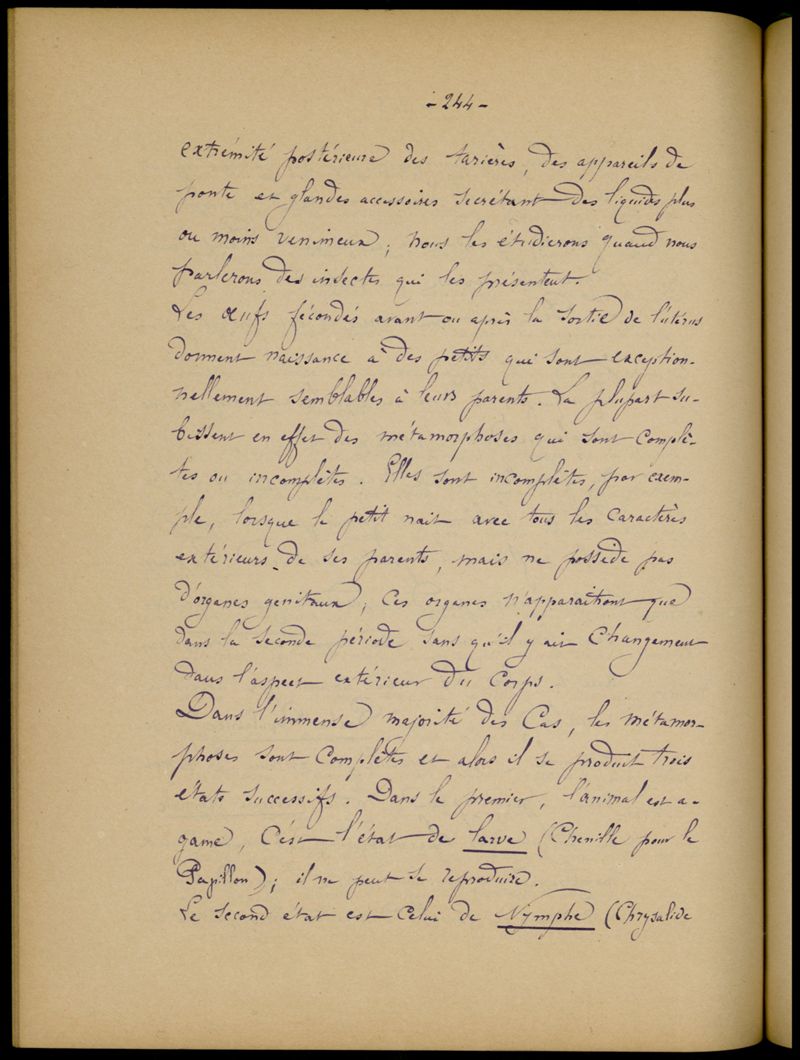 - 244 -
extrémité postérieure des tarières, des appareils de
ponte et glandes accessoires secrétant des liquides plus
ou moins venimeux ; nous les étudierons quand nous
parlerons des insectes qui les présentent.
Les œufs fécondés avant ou après la sortie de l'utérus
donnent naissance à des petits qui sont exception-
nellement semblables à leurs parents. La plupart su-
bissent en effet des métamorphoses qui sont complè-
tes ou incomplètes. Elles sont incomplètes, par exem-
ple, lorsque le petit nait avec tous les caractères
extérieurs de ses parents, mais ne possède pas
d'organes genitaux ; ces organes n'apparaitront que
dans la seconde période sans qu'il y ait changement
dans l'aspect extérieur du corps.
Dans l'immense majorité des cas, les métamor-
phoses sont complètes et alors il se produit trois
états successifs. Dans le premier, l'animal est a-
game, c'est l'état de larve (Chenille pour le
Papillon) ; il ne peut se reproduire.
Le second état est celui de Nymphe (Chrysalide